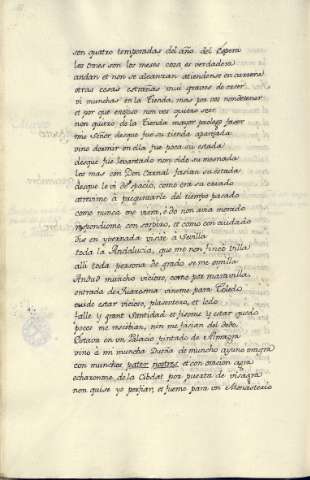 son quatro temporadas del año del Espera
los omes son los meses cosa es verdadera
andan et non se alcanzan atiendense en carrera
otras cosas estrañas mui graves de creer
vi munchas en la tienda, mas por vos non detener
et por que enojoso non vos querie seer
non quiero de la tienda mayor prologo faser
mio Señor desque fue su tienda aparejada
vino dormir en ella fue poca su estada
desque fue levantado non vido su mesnada
los mas con Don Carnal fasian su estada
desque le vi de espacio, como era su criado
atrevime a preguntarle del tiempo pasado
como nunca me viera, é do non avia morado
respondiome con sospiro, et como con cuidado
Dis en yvernada visité á Sevilla
toda la Andalucia, que non fincó Villa
alli toda persona de grado se me omilla
Andud muncho vicioso, como por maravilla
entrada de Quaresma vineme para Toledo
cuidé estar vicioso, plasentero, et ledo
falle y grant Santidad et fisome y estar quedo
pocos me rescibian, nin me facian del dedo
Estava en un Palacio pintado de Almagra
vino á mi muncha Dueña de muncho ayuno magra
con munchos pater nostres, et con oracion agra
echaronme de la Cibdat por puerta de Visagra
non quise yo porfiar, et fueme para un Monasterio